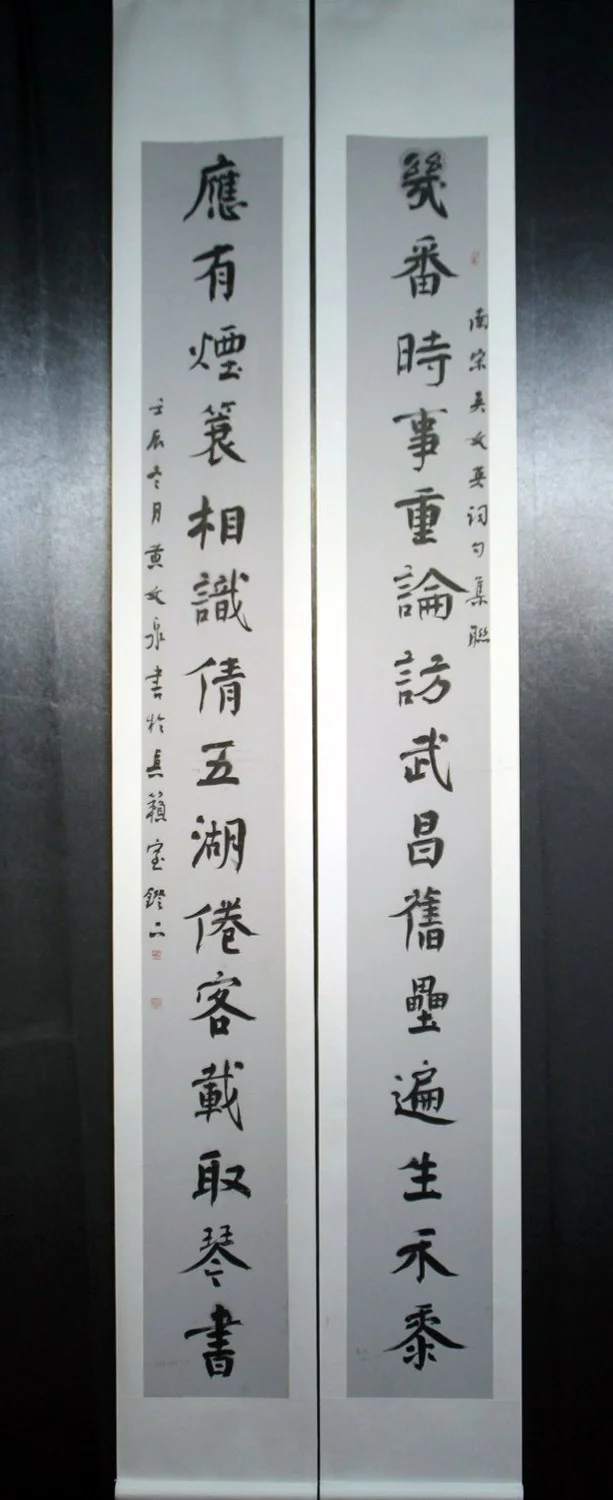 幾番時事重論訪武昌舊壘遍生禾黍
南宋吳文英詞句集聯
應有煙蓑相識倩五湖倦客載取琴書
壬辰冬月黃文泉書於真籟室鐙下